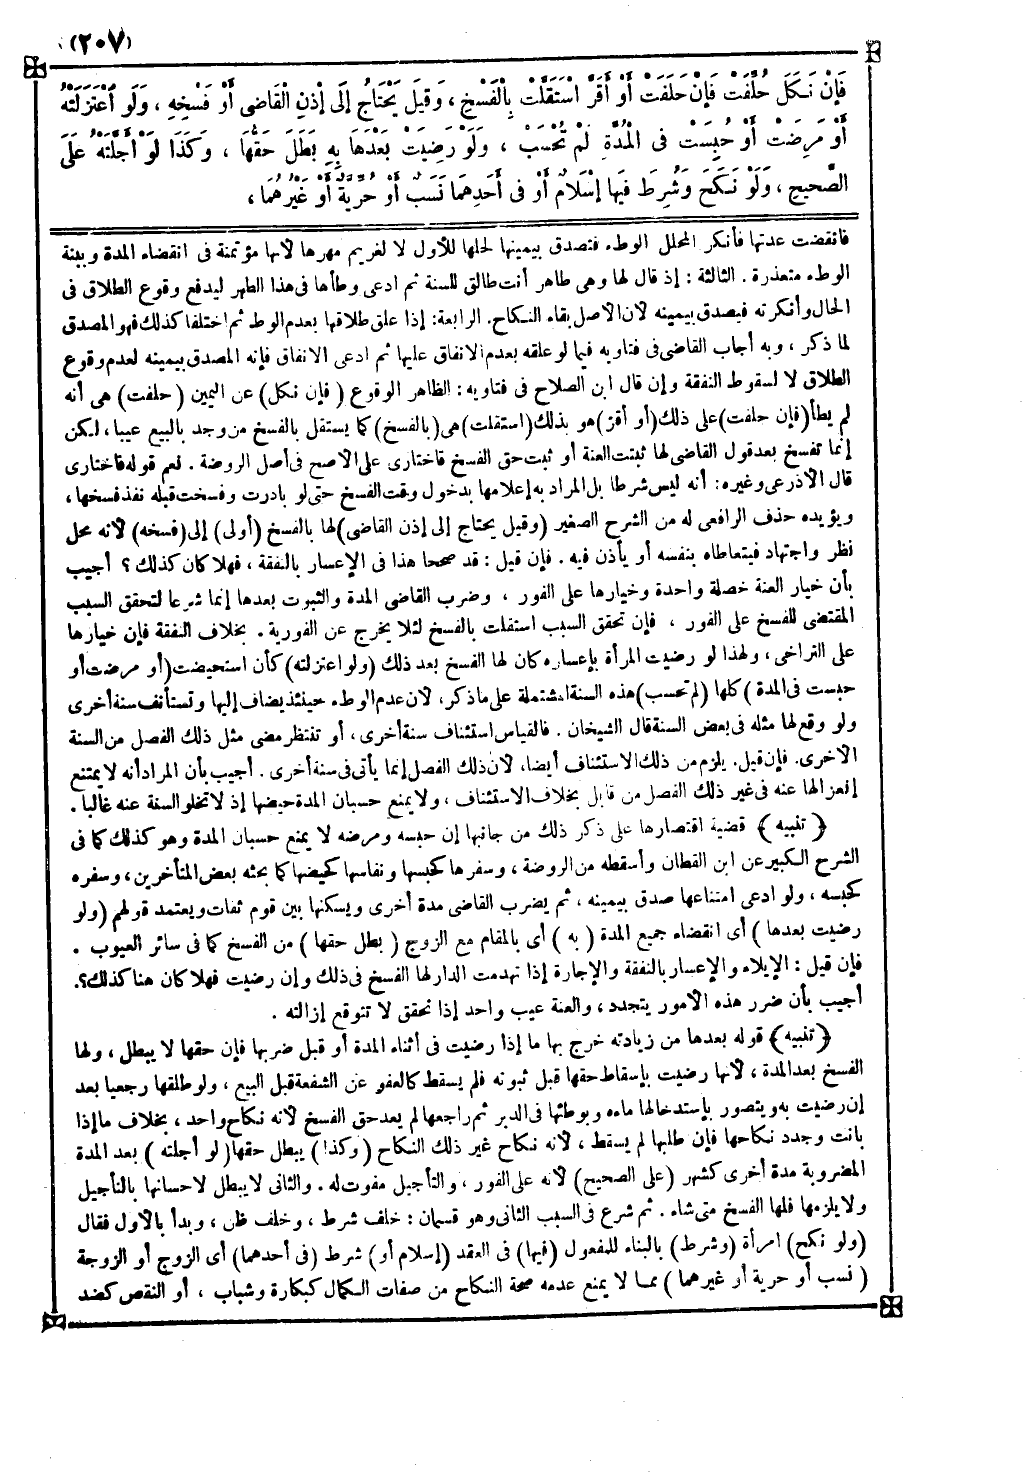 (٢٠٧)
فَإِنْ نَكَلَ حُلِّفَتْ فَإِنْ حَلَفَتْ أَوْ أَقَرَّ اسْتَقَلَّتْ بِالْفَسْخِ ، وَقِيلَ يَحْتَاجُ إِلَى إِذْنِ الْقَاضِى أَوْ فَسْخِهِ ، وَلَوِ اعْتَزَلَتْهُ
أَوْ مَرِضَتْ أَوْ حُبِسَتْ فِى الْمُدَّةِ لَمْ تُحْسَبْ ، وَلَوْ رَضِيَتْ بَعْدَهَا بِهِ بَطَلَ حَقُّهَا ، وَكَذَا لَوْ أَجَّلَتْهُ عَلَى
الصَّحِيحِ ، وَلَوْ نَكَحَ وَشُرِطَ فِيهَا إِسْلَامٌ أَوْ فِى أَحَدِهِمَا نَسَبٌ أَوْ حُرِّيَّةٌ أَوْ غَيْرُهُمَا ،
فانقضت عدتها فأنكر المحلل الوطء فتصدق بيمينها لحلها للأول لا لغريم مهرها لأنها مؤتمنة فى انقضاء المدة وبينة
الوطء متعذرة . الثالثة : إذ قال لها وهى طاهر أنت طالق للسنة ثم ادعى وطأها فى هذا الطهر ليدفع وقوع الطلاق فى
الحال وأنكرته فيصدق بيمينه لان الاصل بقاء النكاح. الرابعة: إذا علق طلاقها بعدم الوطء ثم اختلفا كذلك فهو المصدق
لما ذكر ، وبه أجاب القاضى فى فتاويه فيما لو علقه بعدم الانفاق عليها ثم ادعى الانفاق فإنه المصدق بيمينه لعدم وقوع
الطلاق لا لسقوط النفقة وإن قال ابن الصلاح فى فتاويه : الظاهر الوقوع ( فإن نكل) عن اليمين (حلفت) هى أنه
لم يطأ (فإن حلفت) على ذلك (أو أقر) هو بذلك (استقلت) هى (بالفسخ) كما يستقل بالفسخ من وجد بالبيع عيبا ، لكن
إنما تفسخ بعد قول القاضى لها ثبتت العنة أو ثبت حق الفسخ فاختارى على الاصح فى أصل الروضة . نعم قوله فاختارى
قال الاذرعى وغيره : أنه ليس شرطا بل المراد به إعلامها بدخول وقت الفسخ حتى لو بادرت وفسخت قبله نفذ فسخها ،
ويؤيده حذف الرافعى له من الشرح الصغير (وقيل يحتاج إلى إذن القاضى) لها بالفسخ (أولى) إلى (فسخه) لأنه محل
نظر واجتهاد فيتعاطاه بنفسه أو يأذن فيه . فإن قيل : قد صححا هذا فى الإعسار بالنفقة ، فهلا كان كذلك ؟ أجيب
بأن خيار العنة خصلة واحدة وخيارها على الفور ، وضرب القاضى المدة والثبوت بعدها إنما شرعا لتحقق السبب
المقتضى للفسخ على الفور ، فإن تحقق السبب استقلت بالفسخ لئلا يخرج عن الفورية . بخلاف النفقة فإن خيارها
على التراخى ، ولهذا لو رضيت المرأة بإعساره كان لها الفسخ بعد ذلك (ولو اعتزلته) كأن استحيضت (أو مرضت أو
حبست فى المدة) كلها (لم تحسب) هذه السنة المشتملة على ما ذكر، لان عدم الوطء حينئذ يضاف إليها وتستأنف سنة أخرى
ولو وقع لها مثله فى بعض السنة قال الشيخان . فالقياس استئناف سنة أخرى ، أو تنتظر مضى مثل ذلك الفصل من السنة
الاخرى. فإن قيل. يلزم من ذلك الاستئناف أيضا، لان ذلك الفصل إنما يأتى فى سنة أخرى . أجيب بأن المراد أنه لا يمتنع
إنعزالها عنه فى غير ذلك الفصل من قابل بخلاف الاستئناف ، ولا يمنع حسبان المدة حيضها إذ لا تخلو السنة عنه غالبا .
( تنبيه ) قضية اقتصارها على ذكر ذلك من جانبها إن حبسه ومرضه لا يمنع حسبان المدة وهو كذلك كما فى
الشرح الكبير عن ابن القطان وأسقطه من الروضة ، وسفرها كحبسها ونفاسها كحيضها كما بحثه بعض المتأخرين ، وسفره
كحبسه ، ولو ادعى امتناعها صدق بيمينه ، ثم يضرب القاضى مدة أخرى ويسكنها بين قوم ثقات ويعتمد قولهم (ولو
رضيت بعدها ) أى انقضاء جميع المدة ( به ) أى بالمقام مع الزوج ( بطل حقها ) من الفسخ كما فى سائر العيوب .
فإن قيل : الإيلاء والإعسار بالنفقة والإجارة إذا تهدمت الدار لها الفسخ فى ذلك وإن رضيت فهلا كان هنا كذلك؟.
أجيب بأن ضرر هذه الأمور يتجدد ، والعنة عيب واحد إذا تحقق لا تتوقع إزالته .
( تنبيه ) قوله بعدها من زيادته خرج بها ما إذا رضيت فى أثناء المدة أو قبل ضربها فإن حقها لا يبطل ، ولها
الفسخ بعد المدة ، لأنها رضيت بإسقاط حقها قبل ثبوته فلم يسقط كالعفو عن الشفعة قبل البيع ، ولو طلقها رجعيا بعد
إن رضيت به ويتصور بإستدخالها ماءه وبوطئها فى الدبر ثم راجعها لم يعد حق الفسخ لأنه نكاح واحد ، بخلاف ما إذا
بانت وجدد نكاحها فإن طلبها لم يسقط ، لأنه نكاح غير ذلك النكاح (وكذا) يبطل حقها (لو أجلته ) بعد المدة
المضروبة مدة أخرى كشهر (على الصحيح) لأنه على الفور ، والتأجيل مفوت له . والثانى لا يبطل لاحسانها بالتأجيل
ولا يلزمها فلها الفسخ متى شاء . ثم شرع فى السبب الثانى وهو قسمان : خلف شرط ، وخلف ظن ، وبدأ بالاول فقال
(ولو نكح) امرأة (وشرط) بالبناء للمفعول (فيها) فى العقد (إسلام أو) شرط (فى أحدهما) أى الزوج أو الزوجة
( نسب أو حرية أو غيرهما ) مما لا يمنع عدمه صحة النكاح من صفات الكمال كبكارة وشباب ، أو النقص كضد